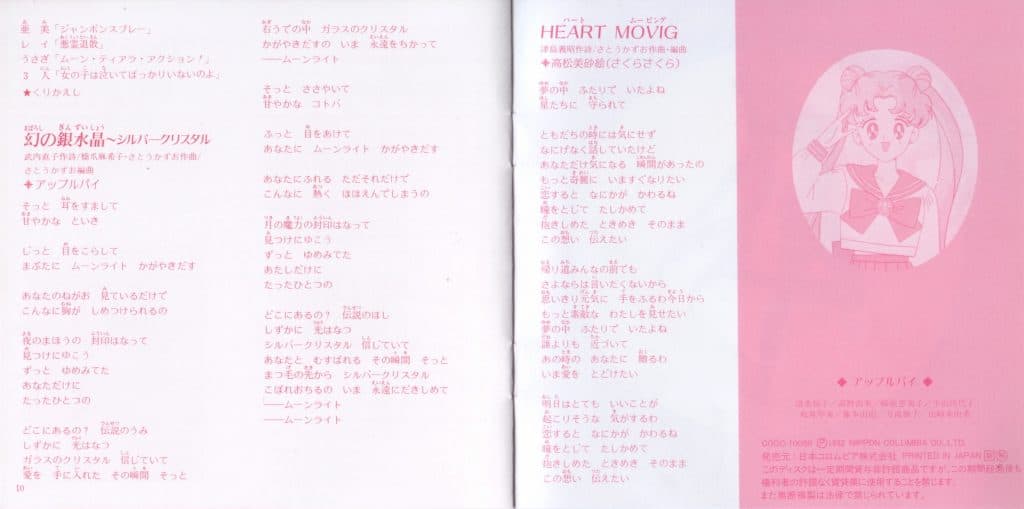 亜　美「シャボンスプレー」
レ　イ「悪霊退散」
うさぎ「ムーン・ティアラ・アクション！」
3　人「女の子は泣いてばっかりいないのよ」
★くりかえし
幻の銀水晶～シルバークリスタル
武内直子作詩/橋爪麻希子・さとうかずお作曲/
さとうかずお編曲
◆アップルパイ
そっと　耳をすまして
甘やかな　といき
じっと　目をこらして
まぶたに　ムーンライト　かがやきだす
あなたのねがお　見ているだけで
こんなに胸が　しめつけられるの
夜のまほうの　封印はなって
見つけにゆこう
ずっと　ゆめみてた
あなただけに
たったひとつの
どこにあるの？　伝説のうみ
しずかに　光はなつ
ガラスのクリスタル　信じていて
愛を　手に入れた　その瞬間　そっと
10
右うでの中　ガラスのクリスタル
かがやきだすの　いま　永遠をちかって
——ムーンライト
そっと　ささやいて
甘やかな　コトバ
ふっと　目をあけて
あなたに　ムーンライト　かがやきだす
あなたにふれる　ただそれだけで
こんなに　熱く　ほほえんでしまうの
月の魔力の封印はなって
見つけにゆこう
ずっと　ゆめみてた
あたしだけに
たったひとつの
どこにあるの？　伝説のほし
しずかに　光はなつ
シルバークリスタル　信じていて
あなたと　むすばれる　その瞬間　そっと
まつ毛の先から　シルバークリスタル
こぼれおちるの　いま　永遠にだきしめて
——ムーンライト
——ムーンライト
HEART MOVIG
津島義昭作詩/さとうかずお作曲・編曲
◆高松美砂絵(さくらさくら)
夢の中　ふたりで　いたよね
星たちに　守られて
ともだちの時には気にせず
なにげなく話していたけど
あなただけ気になる　瞬間があったの
もっと奇麗に　いますぐなりたい
恋すると　なにかが　かわるね
瞳をとじて　たしかめて
抱きしめた　ときめき　そのまま
この想い　伝えたい
帰り道みんなの前でも
さよならは言いたくないから
思いきり元気に　手をふるわ今日から
もっと素敵な　わたしを見せたい
夢の中　ふたりで　いたよね
誰よりも　近づいて
あの時の　あなたに　贈るわ
いま愛を　とどけたい
明日はとても　いいことが
起こりそうな　気がするわ
恋すると　なにかが　かわるね
瞳をとじて　たしかめて
抱きしめた　ときめき　そのまま
この想い　伝えたい
◆ アップルパイ ◆
Ⓟ1992 NIPPON COLUMBIA CO.,LTD.
発売元:日本コロムビア株式会社　PRINTED IN JAPAN
このディスクは一定期間貸与非許諾商品ですが、この期間経過後も
権利者の許諾なく賃貸業に使用することを禁じます。
また無断複製は法律で禁じられています。